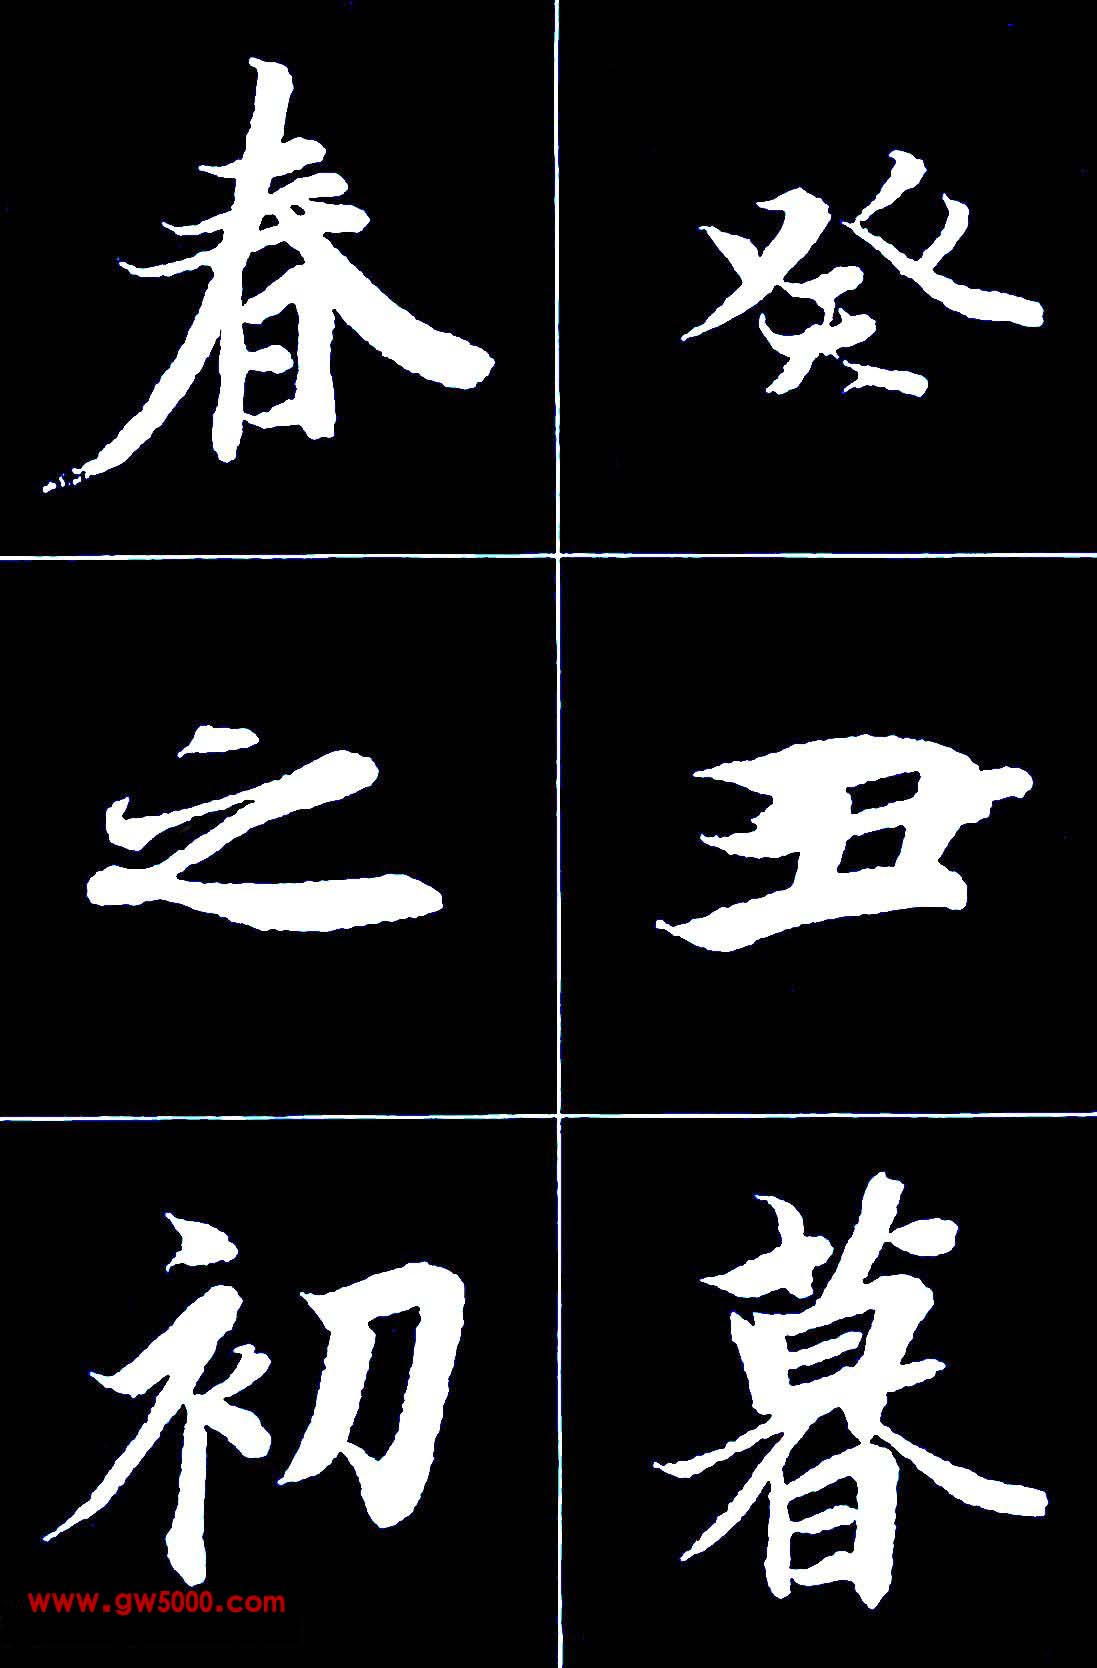 癸丑暮
春之初
www.gw5000.com